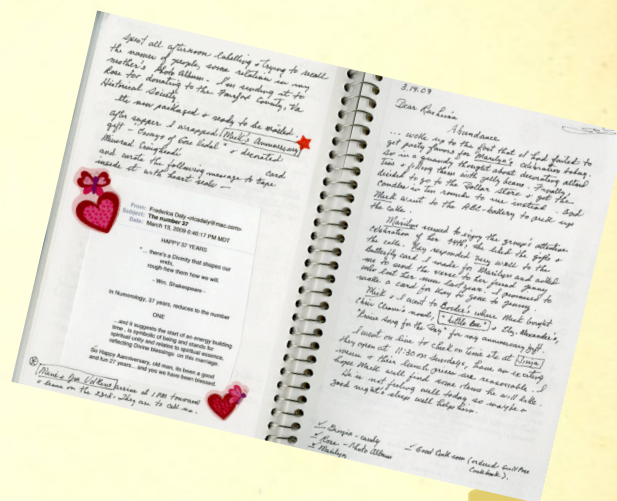 spent all afternoon labelling + trying to recall
the names of people, some relatives in my
mother's photo album. I'm sending it to
Rose for donating to the Fairfax County, Va
Historical Society.
Its now packaged + ready to be mailed.
After supper I wrapped Mark's Anniversary
gift - "Songs of Eric Vidal" + decorated
card
and wrote the following message to tape
inside it with heart seals —
From: Frederica Daly <ricadaly@mac.com>
Subject: The number 37
Date: March 13, 2009 6:46:17 PM MDT
HAPPY 37 YEARS
"... there's a Divinity that shapes our
ends,
rough hew them how we will.
- Wm. Shakespeare -
In Numerology, 37 years, reduces to the number
ONE
...and it suggests the start of an energy building
time, is symbolic of being and stands for
spiritual unity and relates to spiritual essence,
reflecting Divine blessings on this marriage.
So Happy Aanniversary, old man, its been a good
and fun 27 years... and yes we have been blessed.
arrive at 1 PM tomorrow
+ leave on the 23rd. They are to call me.
3.14.09
Dear
Abundance
... woke up to the fact that I had failed to
get party favors for Marilyn's celebration today.
also in a grumpy thought about decorating altoid
tins + filling them with jelly beans. Finally,
decided to go to the Dollar Store + get the
candles in tin rounds to use instead. God
Mark went to the ABC-bakery to pick up
the cake.
Marilyn seemed to enjoy the group's attentive
celebration of her gifts, she liked the gifts +
the cake. They responded very well to the
butterfly card I made for Marilyn and asked
me to send the verse to her friend Jenny
who lost her mom last year. I promised to
write a card for Kay to give to Jenny.
Mark + I went to Border's where Mark bought
Chris Cleave's novel, "Little Bee" + Eliz. Alexander's,
"Praise Song for the Day" for my anniversary gift.
I went on line to check on lunch site at
they open at 11:30 on Sundays, have an exciting
menu + their lunch prices are reasonable. I
hope Mark will find some items he will like.
He is not feeling well today so maybe a
good night's sleep will help him.
- candy
Rose - Photo Album
Marilyn
Good Cook.com (ordered
Cookbook).